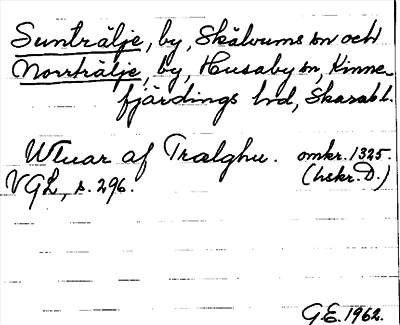 Sunträlje, by, Skälvums sn och
Norrträlje, by, Husaby sn, Kinne-
fjärdings hd, Skarab.l.
Uluar af Trælghu. omkr. 1325.
VGL, s. 296. (hskr. D.)
G.E. 1962.